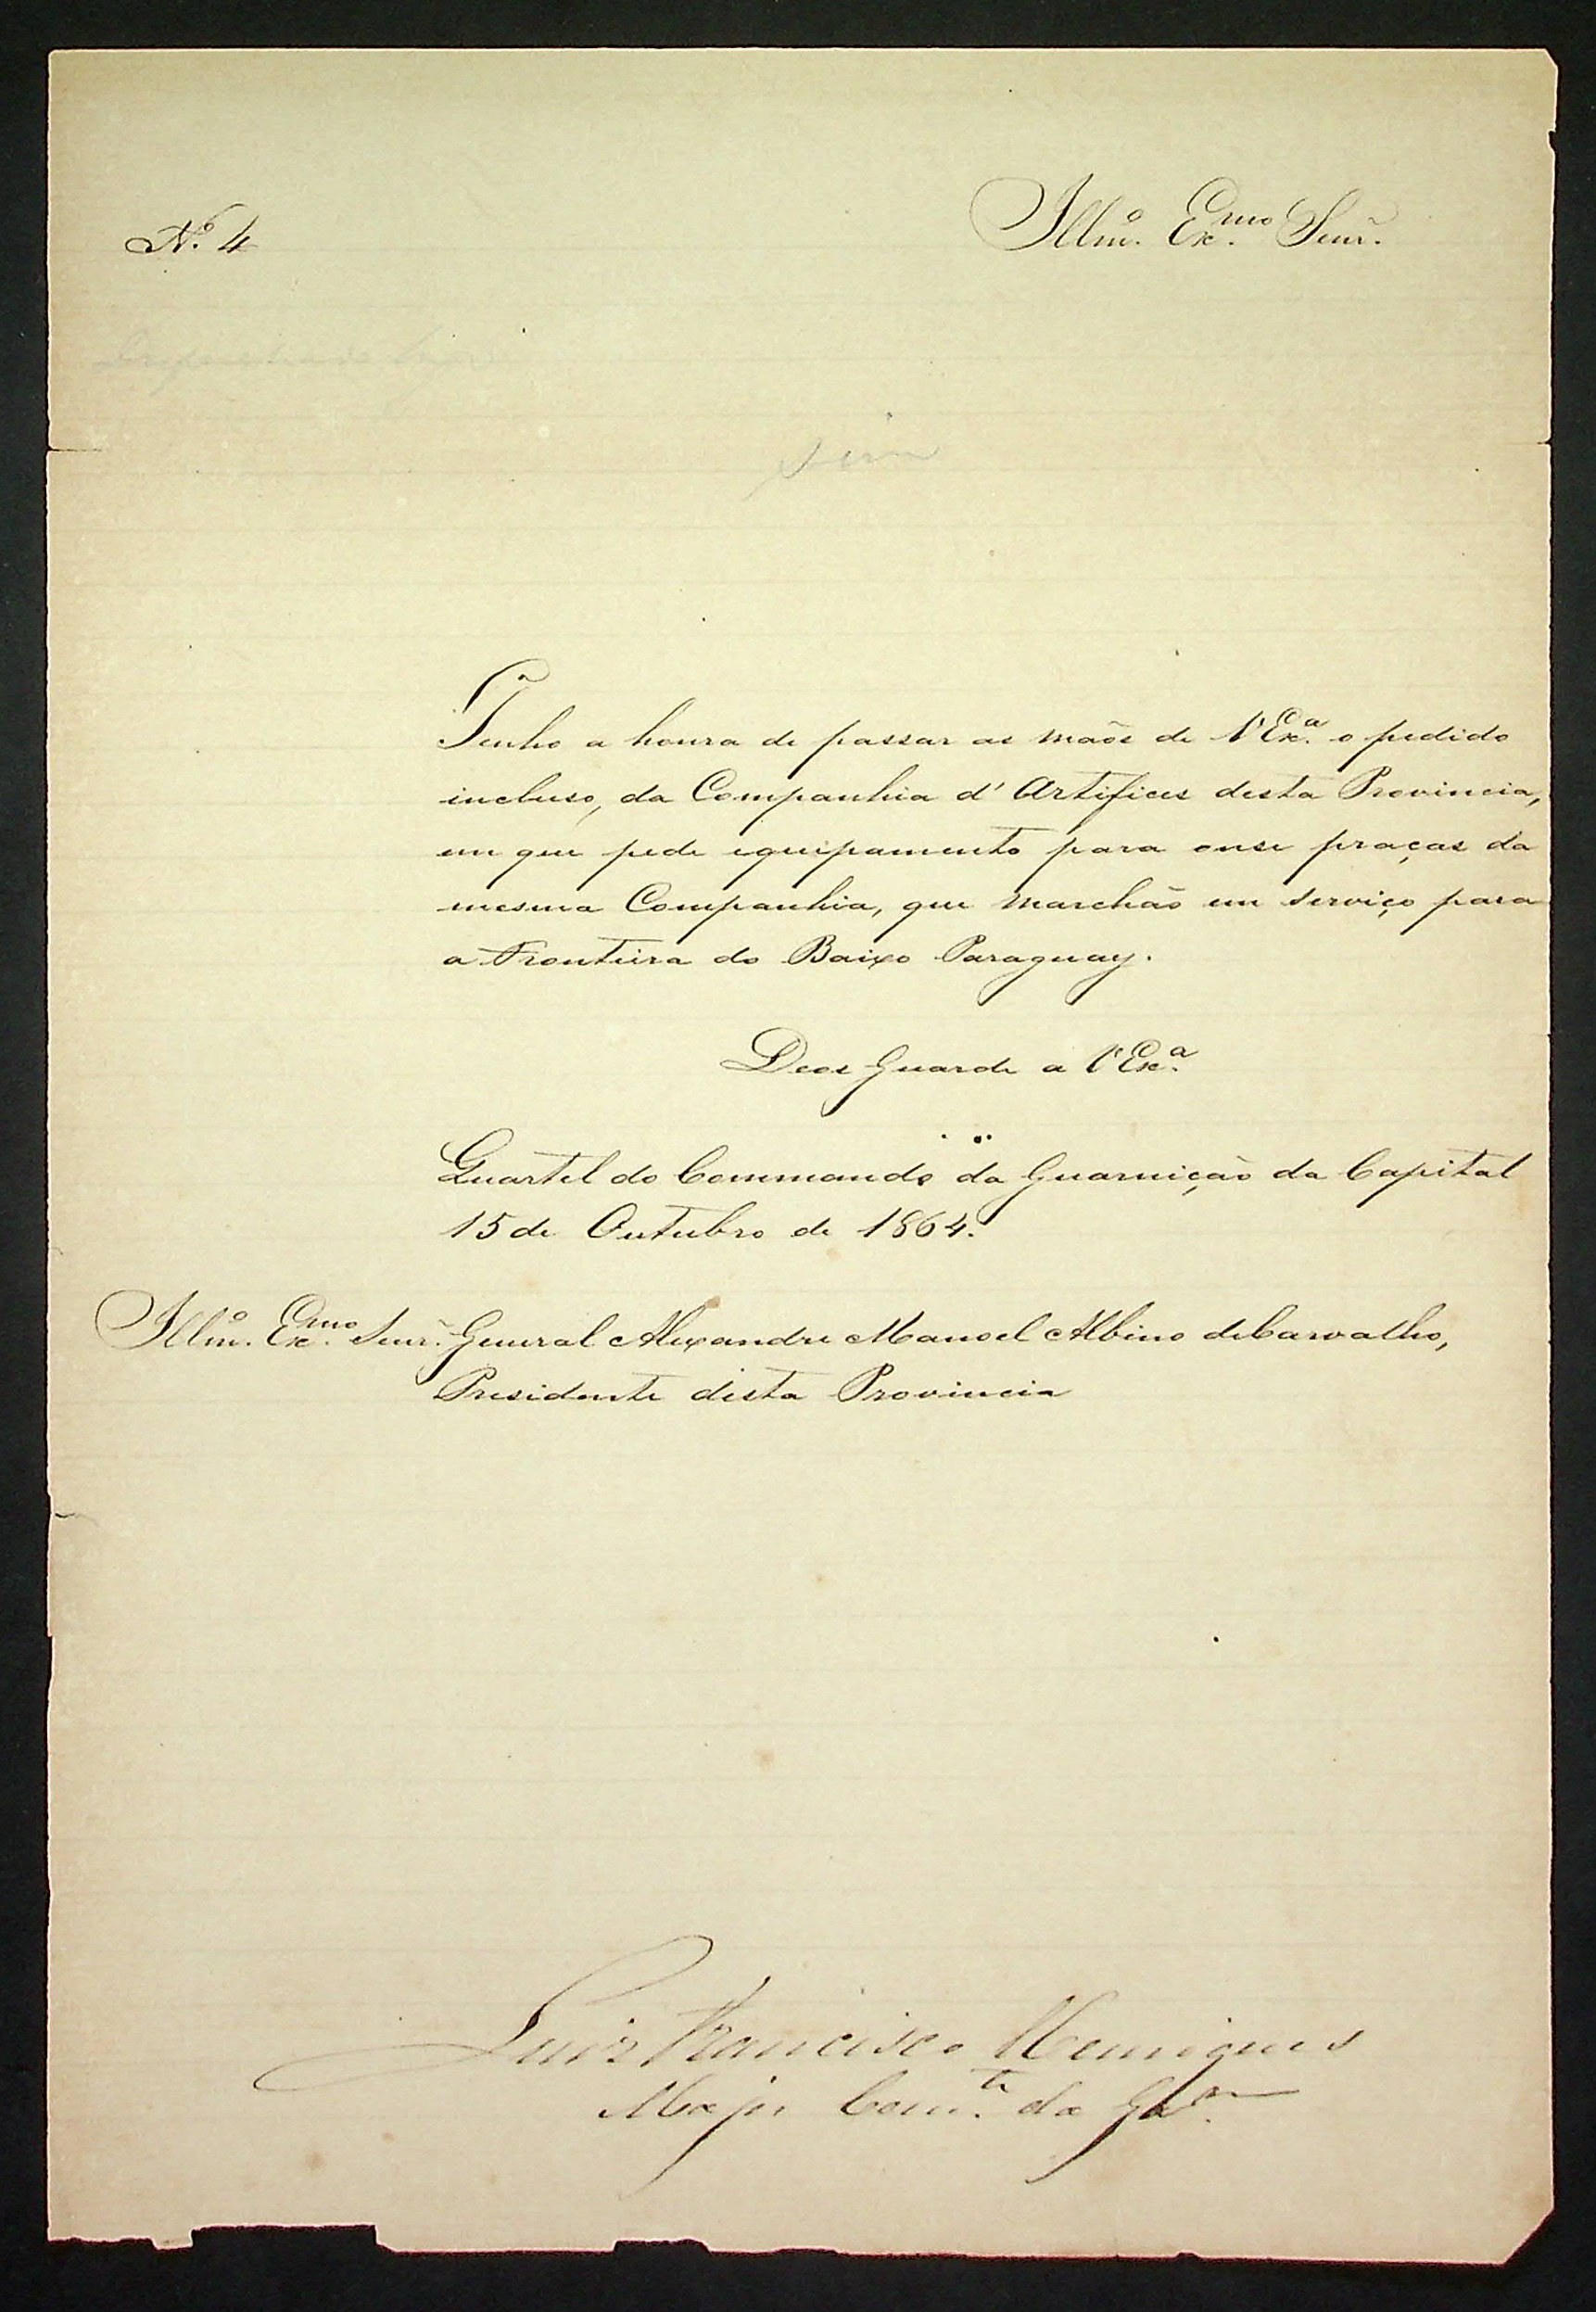 Nº. 4
Illmº. Exmo. Senr.
Sim
Tenho a honra de passar as maõs de V Exª. o pedido
incluso, da Companhia d' Artifices desta Provincia,
em que pede equipamento para onse praças da
mesma Companhia, que marchão em serviço para
a Fronteira do Baixo Paraguay.
Deos Guarde a V Exª.
Quartel do Commando da Guarnição da Capital
15 de Outubro de 1864.
Illmº. Exmo. Senr. General Alexandre Manoel Albino de Carvalho,
Presidente desta Provincia
Luiz Francisco Henriques
Major Comte. da Gam.